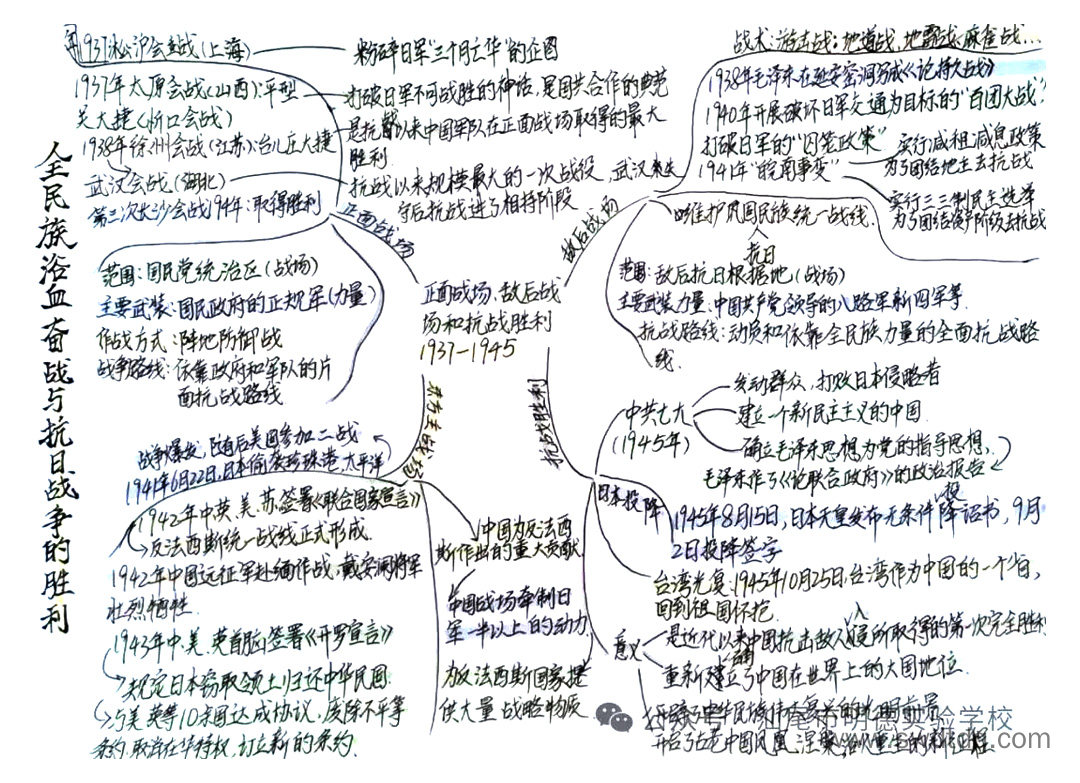 全民族浴血奋战与抗日战争的胜利
1937淞沪会战(上海)
粉碎日军"三个月亡华"的企图
1937年太原会战(山西):平型
关大捷(忻口会战)
打破日军不可战胜的神话,是国共合作的典范
1938年徐州会战(江苏):台儿庄大捷
是抗战以来中国军队在正面战场取得的最大
胜利
武汉会战(湖北)
抗战以来规模最大的一次战役,武汉失
守后抗战进了相持阶段
第三次长沙会战1941年:取得胜利
正面战场
范围:国民党统治区(战场)
主要武装:国民政府的正规军(力量)
作战方式:阵地防御战
战争路线:依靠政府和军队的片
面抗战路线
正面战场、敌后战
场和抗战胜利
1937—1945
敌后战场
战术:游击战:地道战,地雷战,麻雀战...
1938年毛泽东在延安窑洞写成《论持久战》
1940年开展破坏日军交通为目标的"百团大战".
打破日军的"囚笼政策"
1941年"皖南事变"
实行减租减息政策
为了团结地主去抗战
实行三三制民主选举
为了团结资产阶级去抗战
维护民国民族统一战线.
抗日
范围:敌后抗日根据地(战场)
主要武装力量:中国共产党领导的八路军新四军等.
抗战路线:动员和依靠全民族力量的全面抗战路
线.
东方主战场
战争爆发,随后美国参加二战
1941年6月22日,日本偷袭珍珠港,太平洋
1942年中英、美、苏签署《联合国家宣言》
反法西斯统一战线正式形成.
1942年中国远征军赴缅作战,戴安澜将军
壮烈牺牲.
1943年中、美、英首脑签署《开罗宣言》
规定日本窃取领土归还中华民国
与美英等10余国达成协议,废除不平等
条约,取消在华特权,订立新的条约.
中国为反法西
斯作出的重大贡献
中国战场牵制日
军一半以上的动力
为反法西斯国家提
供大量战略物质.
抗战胜利
日本投降
中共七大
(1945年)
发动群众,打败日本侵略者
建立一个新民主主义的中国.
确立毛泽东思想为党的指导思想,
毛泽东作了《论联合政府》的政治报告
1945年8月15日,日本天皇发布无条件降诏书,9月
投
2日投降签字
台湾光复:1945年10月25日,台湾作为中国的一个省,
回到祖国怀抱.
意义
是近代以来中国抗击敌人侵所取得的第一次完全胜利
入
重新建立了中国在世界上的大国地位.
确
开辟了中华民族伟大复兴的光明前景
开启了古老中国凤凰涅槃,浴火重生的新征程.
公众号·汕尾市明德实验学校